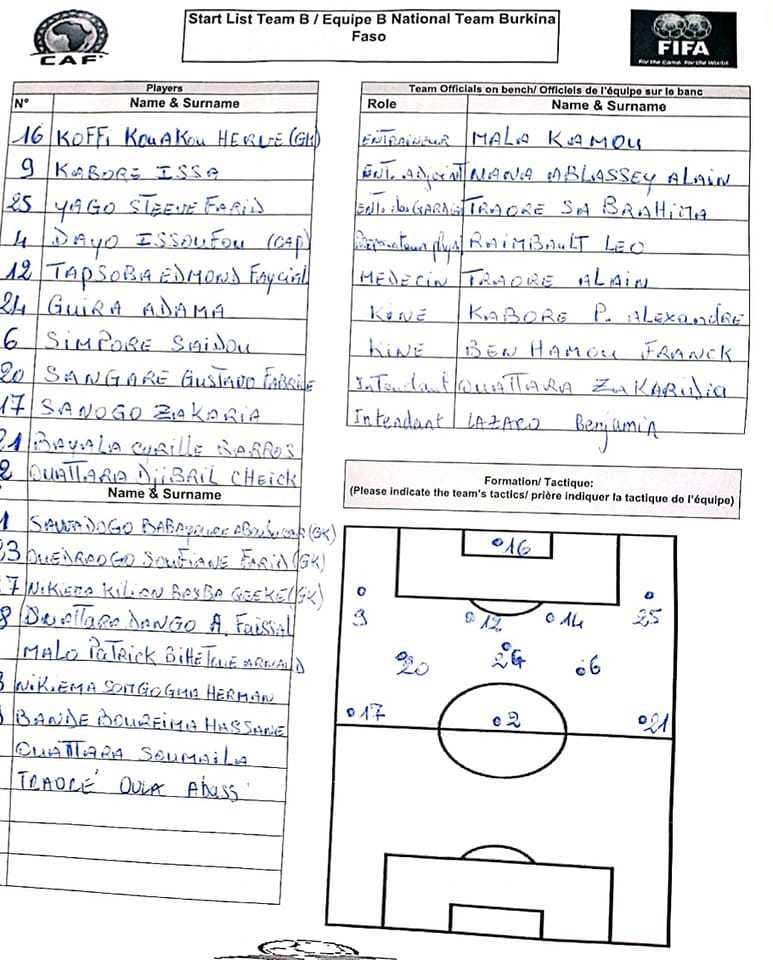 CAF
Start List Team B / Equipe B National Team Burkina
Faso
FIFA
For the Game. For the World.
Players
N° Name & Surname
16 KOFFI KOUAKOU HERVE (GK)
9 KABORE ISSA
25 YAGO STEEVE FARID
4 DAYO ISSOUFOU (CAP)
12 TAPSOBA EDMOND FAYCIAL
24 GUIRA ADAMA
6 SIMPORE SAIDOU
20 SANGARE GUSTAVO FABRICE
17 SANOGO ZAKARIA
21 BAYALA CYRILLE BARROS
2 OUATTARA DJIBRIL CHEICK
Name & Surname
1 SAWADOGO (GK)
23 OUEDRAOGO SOUFIANE FARID (GK)
7 NIKIEMA KILIAN (GK)
8 OUATTARA DANGO A. FAISSAL
MALO PATRICK ARNAUD
NIKIEMA HERMAN
BANDE BOUREIMA HASSANE
OUATTARA SOUMAILA
TRAORE OULA Abass
Team Officials on bench/ Officiels de l'équipe sur le banc
Role Name & Surname
ENTRAINEUR MALO KAMOU
ENT. Adjoint NANA ABLASSEY ALAIN
TRAORE SA BRAHIMA
RAIMBAULT LEO
MEDECIN TRAORE ALAIN
KINE KABORE P. ALEXANDRE
KINE BEN HAMOU FRANCK
Intendant OUATTARA ZAKARIDIA
Intendant LAZARO Benjamin
Formation/ Tactique:
(Please indicate the team's tactics/ prière indiquer la tactique de l'équipe)
16
9 12 14 25
20 24 6
17 2 21